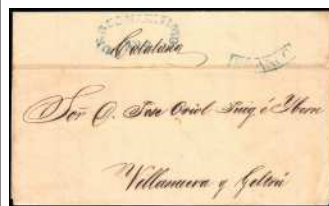 Cataluña
Señ D. Jose Oriol Puig é Ybern
Villanueva y Geltrú